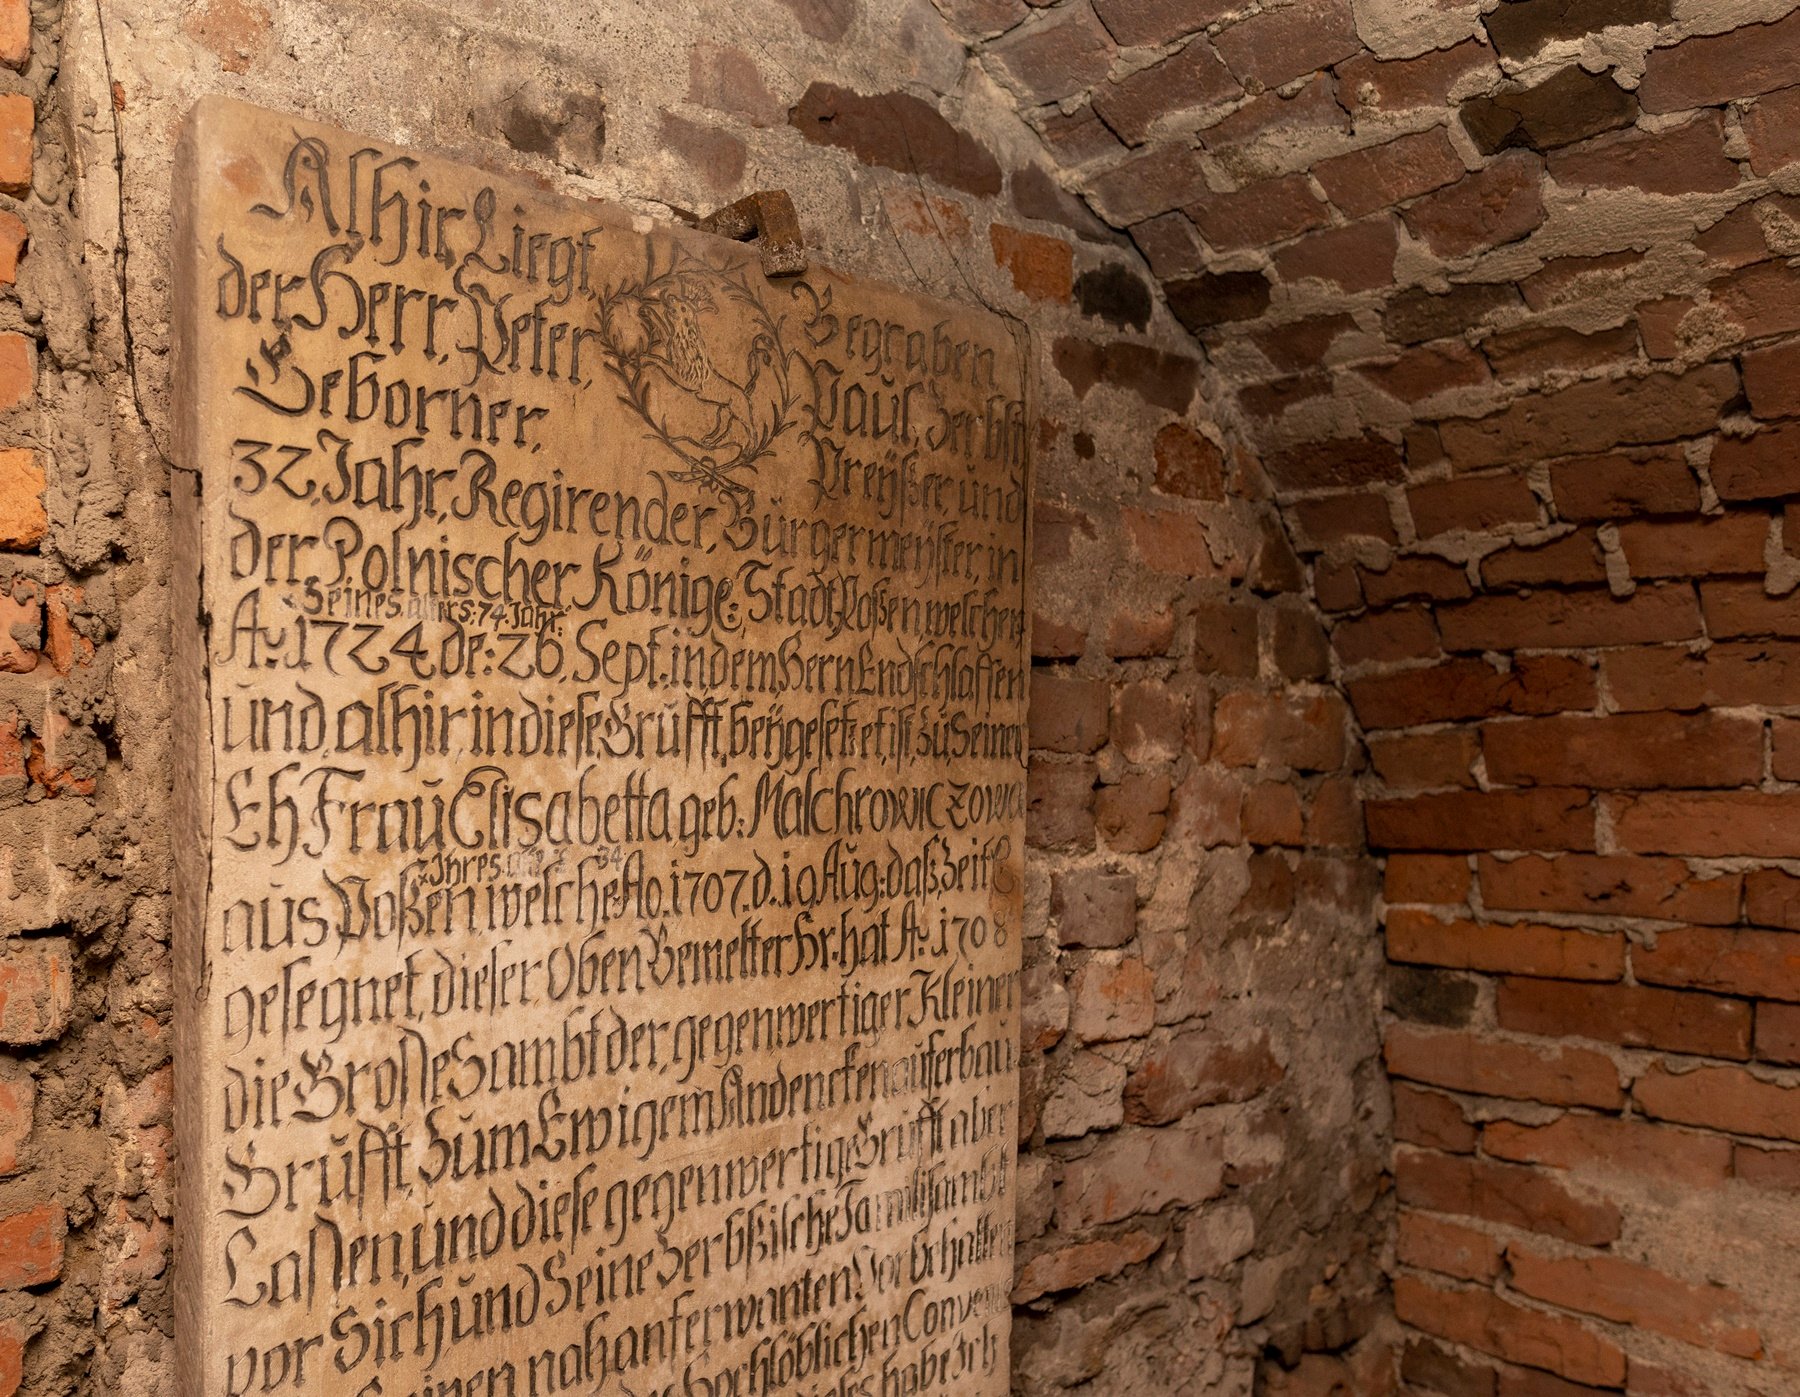 Alhir Liegt Begraben
der Herr, Peter, Paul, Zerbst,
Geborner, Preÿßer, und
32, Jahr, Regirender, Bürgermeÿster, in
der Polnischer Könige: Stadt, Poßen, welcher
Seines. alters: 74. Jahr:
Aᵒ: 1724 de: 26, Sept. in dem Hern Endschlaffen
und, alhir, in diese, Grufft, beÿgesetzet, ist, zu, Seiner
Eh Frau Elisabetta geb: Malchrowiczowa
Jhres 34
aus Poßen, welche: Ao. 1707. d. 19 Aug: daß, Zeitl
gesegnet, dieser, Oben Bemelter Hr. hat Aᵒ. 1708
die Große Sambt der, gegenwertiger Kleiner
Grufft, Zum Ewigem Andencken auferbau
Laßen, und diese gegenwertige Grufft aber
vor Sich und Seine Zerbßische Famili sambt
Seinen nah anferwanten Vor Behalten
Hochlöblichen Conven
dieses habe Jch